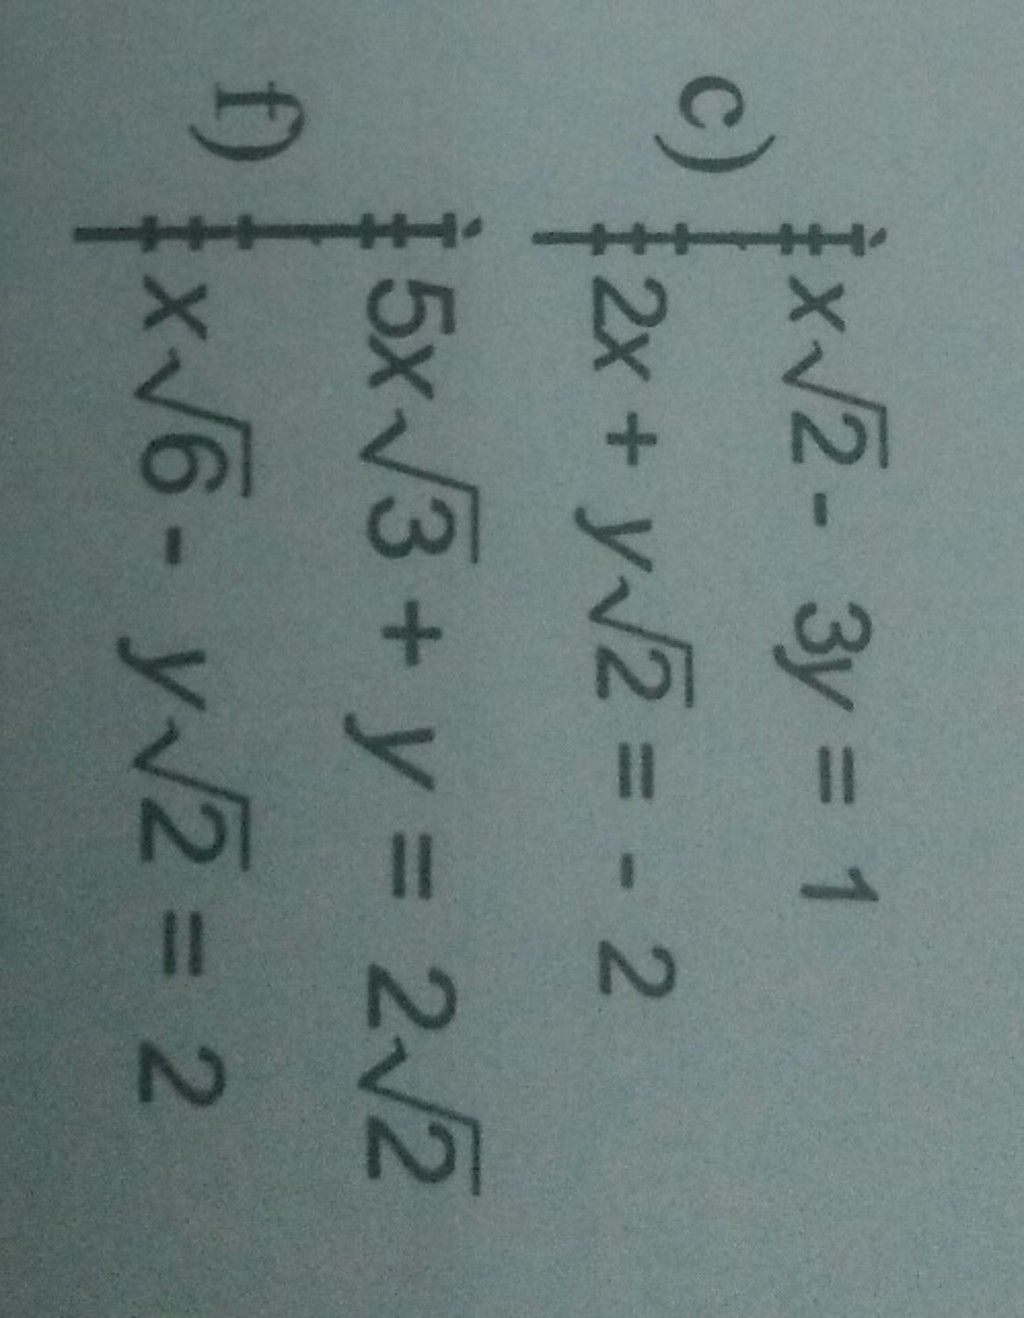 c) x√2 - 3y = 1
2x + y√2 = - 2
f) 5x√3 + y = 2√2
x√6 - y√2 = 2